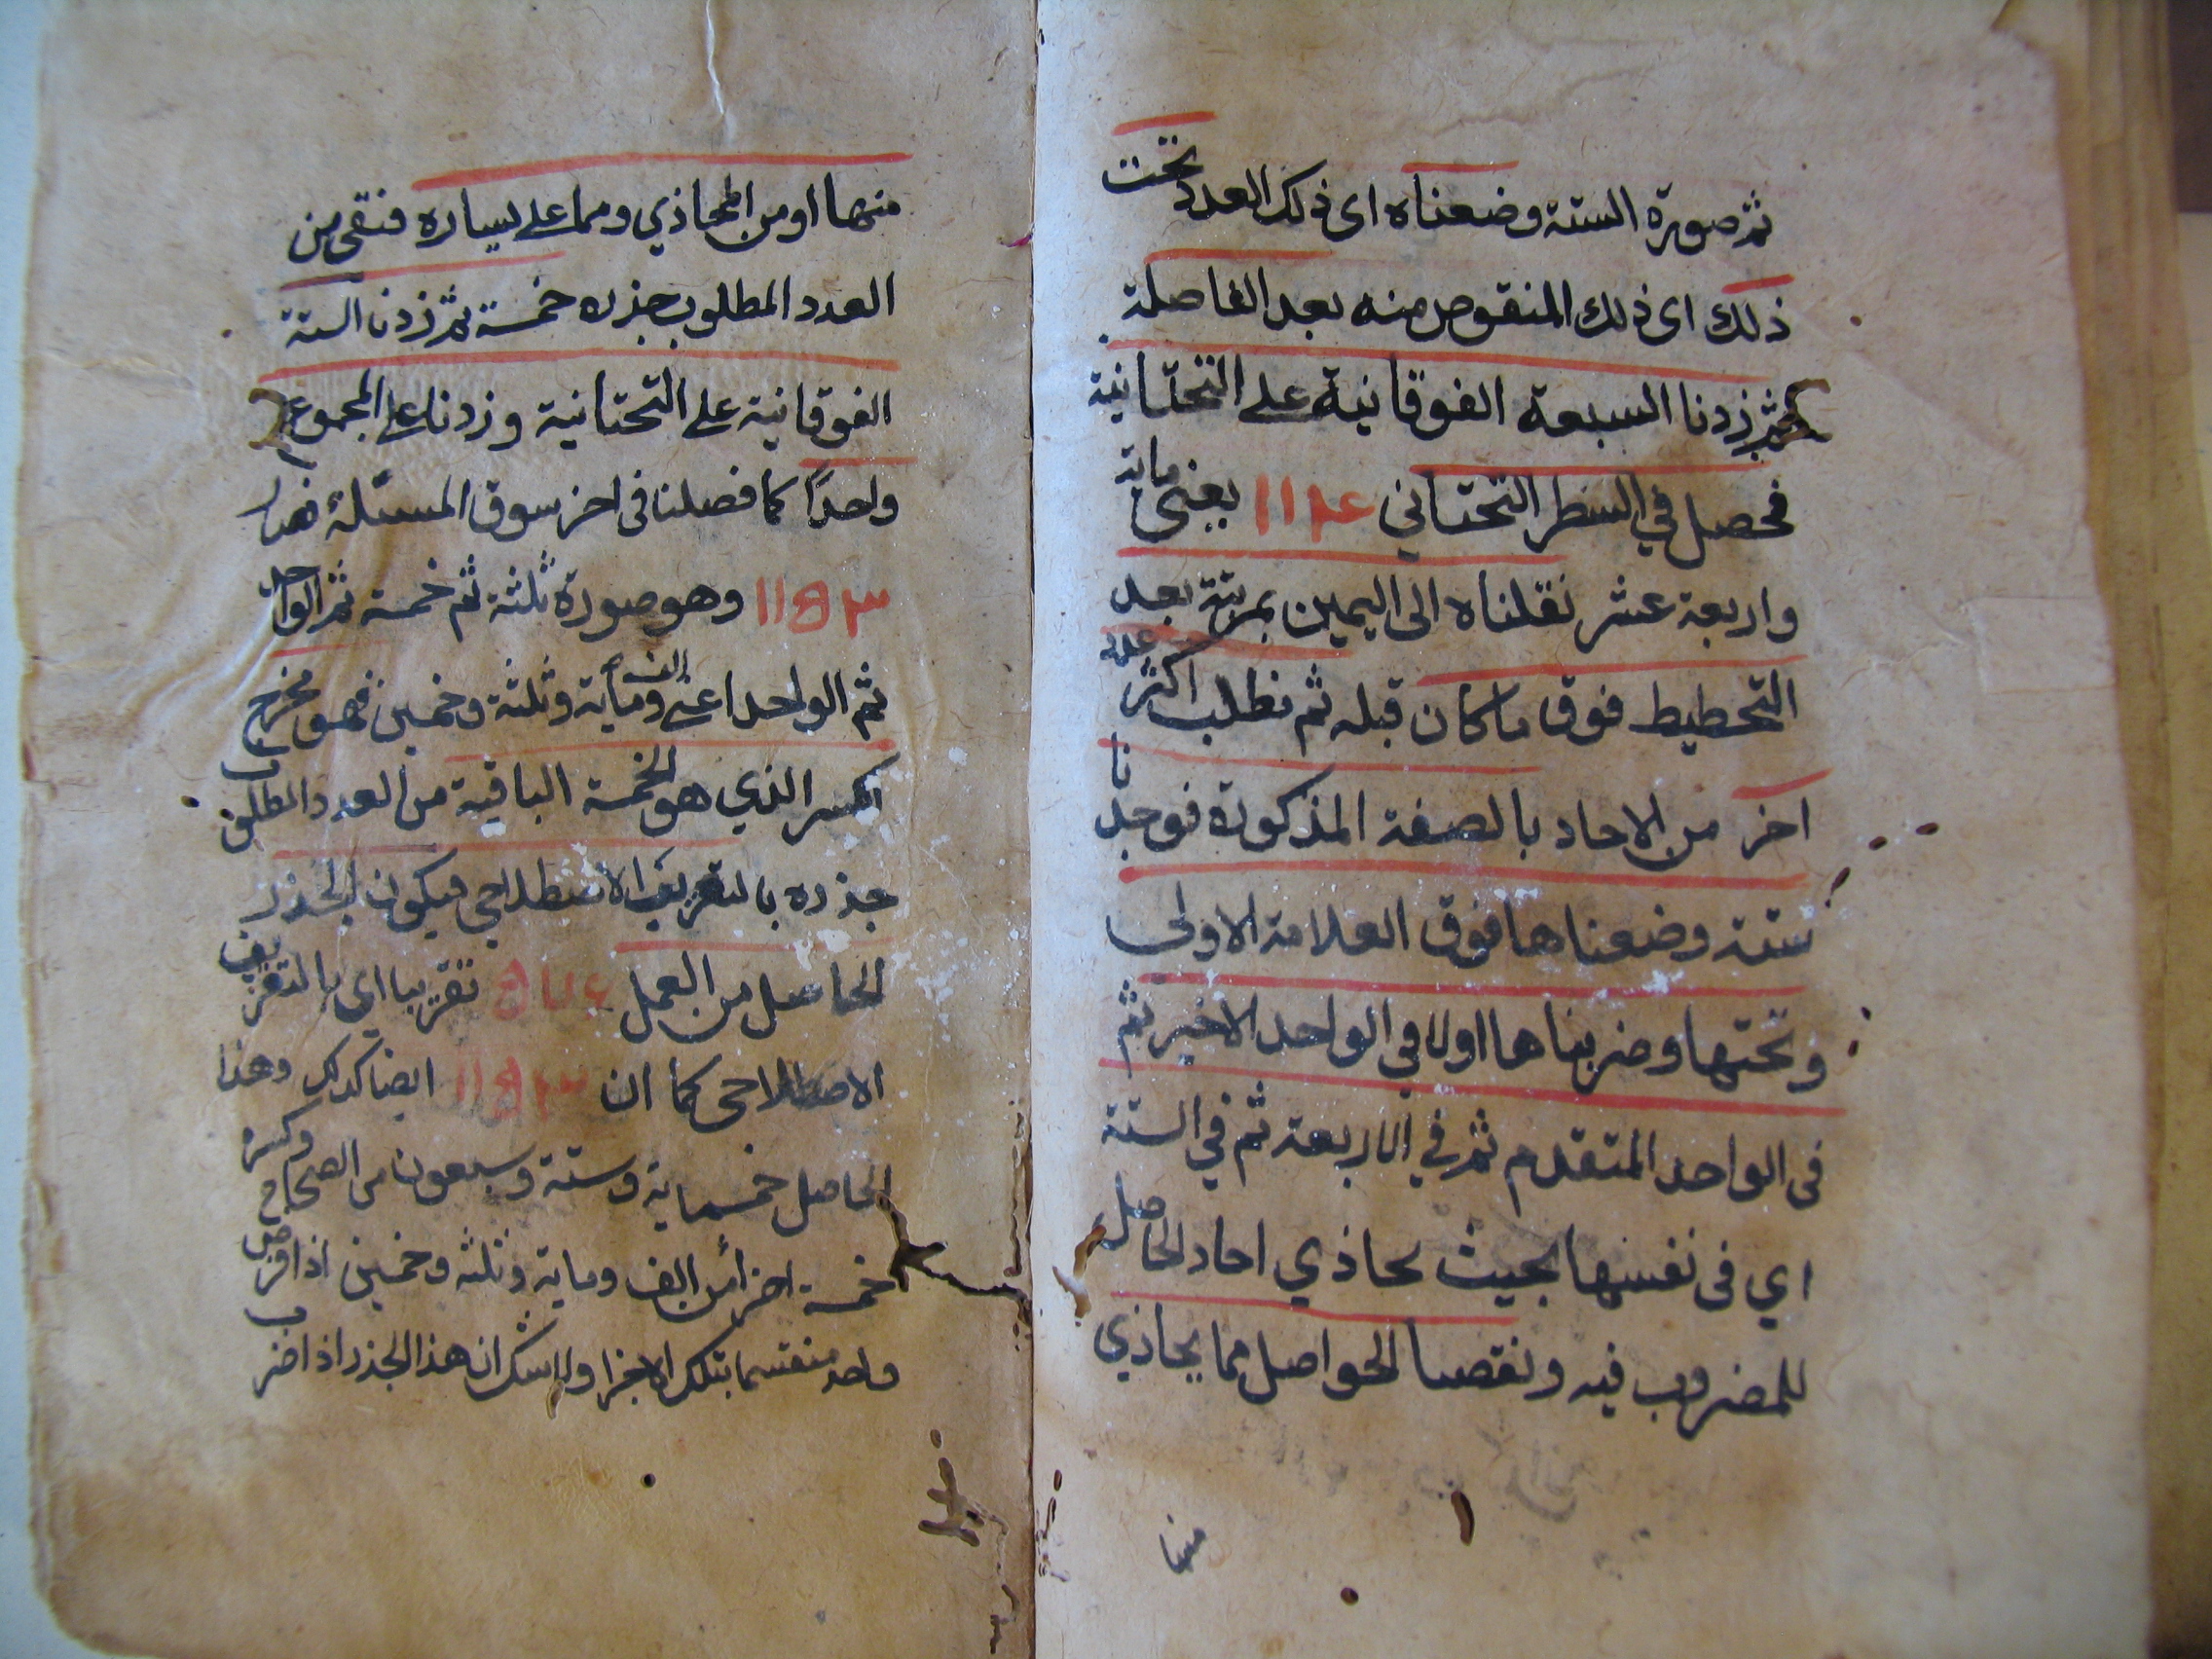 ثم صورة الستة وضعناه اى ذلك العدد تحت
ذلك اى ذلك المنقوص منه بعد الفاصلة
ثم زدنا السبعة الفوقانية على التحتانية
فحصل في السطر التحتاني ١١٤ يعنى ماية
واربعة عشر نقلناه الى اليمين بمرتبة بعد
التخطيط فوق ما كان قبله ثم نطلب اكثر عدد
اخر من الاحاد بالصفة المذكورة فوجدنا
ستة وضعناها فوق العلامة الاولى
وتحتها وضربناها اولا في الواحد الاخير ثم
فى الواحد المتقدم ثم في الاربعة ثم في الستة
اي فى نفسها بحيث يحاذي احاد الحاصل
للمضروب فيه ونقصنا الحواصل مما يحاذي
منها
منها او من المحاذي ومما على يساره فبقى من
العدد المطلوب جذره خمسة ثم زدنا الستة
الفوقانية على التحتانية وزدنا على المجموع
واحدًا كما فصلنا فى اخر سوق المسئلة فصار
١١٥٣ وهو صورة ثلثة ثم خمسة ثم الواحد
ثم الواحد اعنى الف ومأية وثلثة وخمسين فهو مخرج
الكسر الذي هو الخمسة الباقية من العدد المطلوب
جذره بالتقريب الاصطلاحي فيكون الجذر
الحاصل من العمل ٥٧٦ تقريبا اى بالتقريب
الاصطلاحى كما ان ١١٥٣ ايضا كذلك وهذا
الحاصل خمسماية وستة وسبعون من الصحاح وكسره
خمسة اجزأ من الف وماية وثلثه وخمسين اذا فرض
واحد منقسما بتلك الاجزا ولا شك ان هذا الجذر اذا ضرب